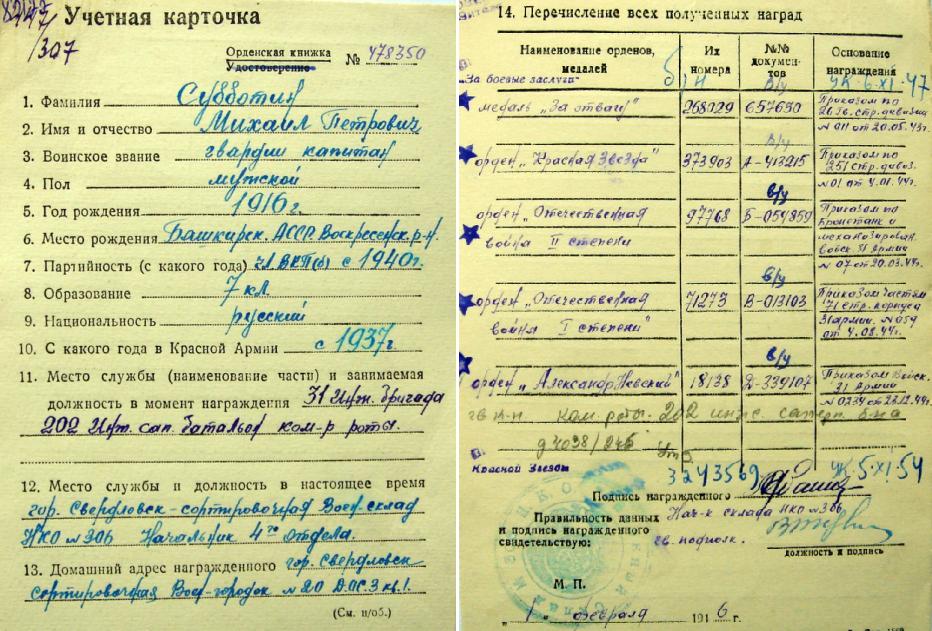 8247
/307
Учетная карточка
Орденская книжка
Удостоверение
№ 478350
1. Фамилия Субботин
2. Имя и отчество Михаил Петрович
3. Воинское звание гвардии капитан
4. Пол мужской
5. Год рождения 1916 г.
6. Место рождения Башкирск. АССР Воскресенск. р-н.
7. Партийность (с какого года) чл. ВКП(б) с 1940г.
8. Образование 7 кл.
9. Национальность русский
10. С какого года в Красной Армии с 1937г.
11. Место службы (наименование части) и занимаемая
должность в момент награждения 31 Инж. бригада
202 Инж. сап. батальон ком-р роты.
12. Место службы и должность в настоящее время
гор. Свердловск-сортировочная Воен. склад
НКО №306 Начальник 4го отдела.
13. Домашний адрес награжденного гор. Свердловск
сортировочная Воен-городок №20 Д.О.С. 3 кв. 1.
(См. н/об.)
14. Перечисление всех полученных наград
Наименование орденов,
медалей
Их
номера
№№
докумен-
тов
Основание
награждения
„За боевые заслуги“ б/н в/у УК-6-XI-47
медаль „За отвагу“ 268029 657630 Приказом по
26 гв. стр. дивизии
№ 011 от 20.05.43г.
в/у
орден „Красная Звезда“ 373903 А-413215 Приказом по
251 стр. дивиз.
№ 01 от 4.01.44г.
в/у
орден „Отечественная 97768 Б-054859 Приказом по
война II степени Бронетанк и
механизирован.
войск 31 Армии
№ 07 от 20.03.44г.
в/у
орден „Отечественная 71273 В-013103 Приказом частям
война I степени“ 71 стр. корпуса
31 армии. № 059
от 4.08.44г.
в/у
орден „Александр Невский“ 18138 339107 Приказом Войск.
31 Армии
№ 0234 от
гв. к-н ком. роты 202 инж. саперн. б-на
д 4038/245
Красной Звезды 3243569 УК 5-XI-54
Подпись награжденного
Правильность данных
и подписи награжденного
свидетельствую:
Нач-к склада НКО № 306
гв. подполк.
должность и подпись
М. П.
„1“ февраля 1946 г.